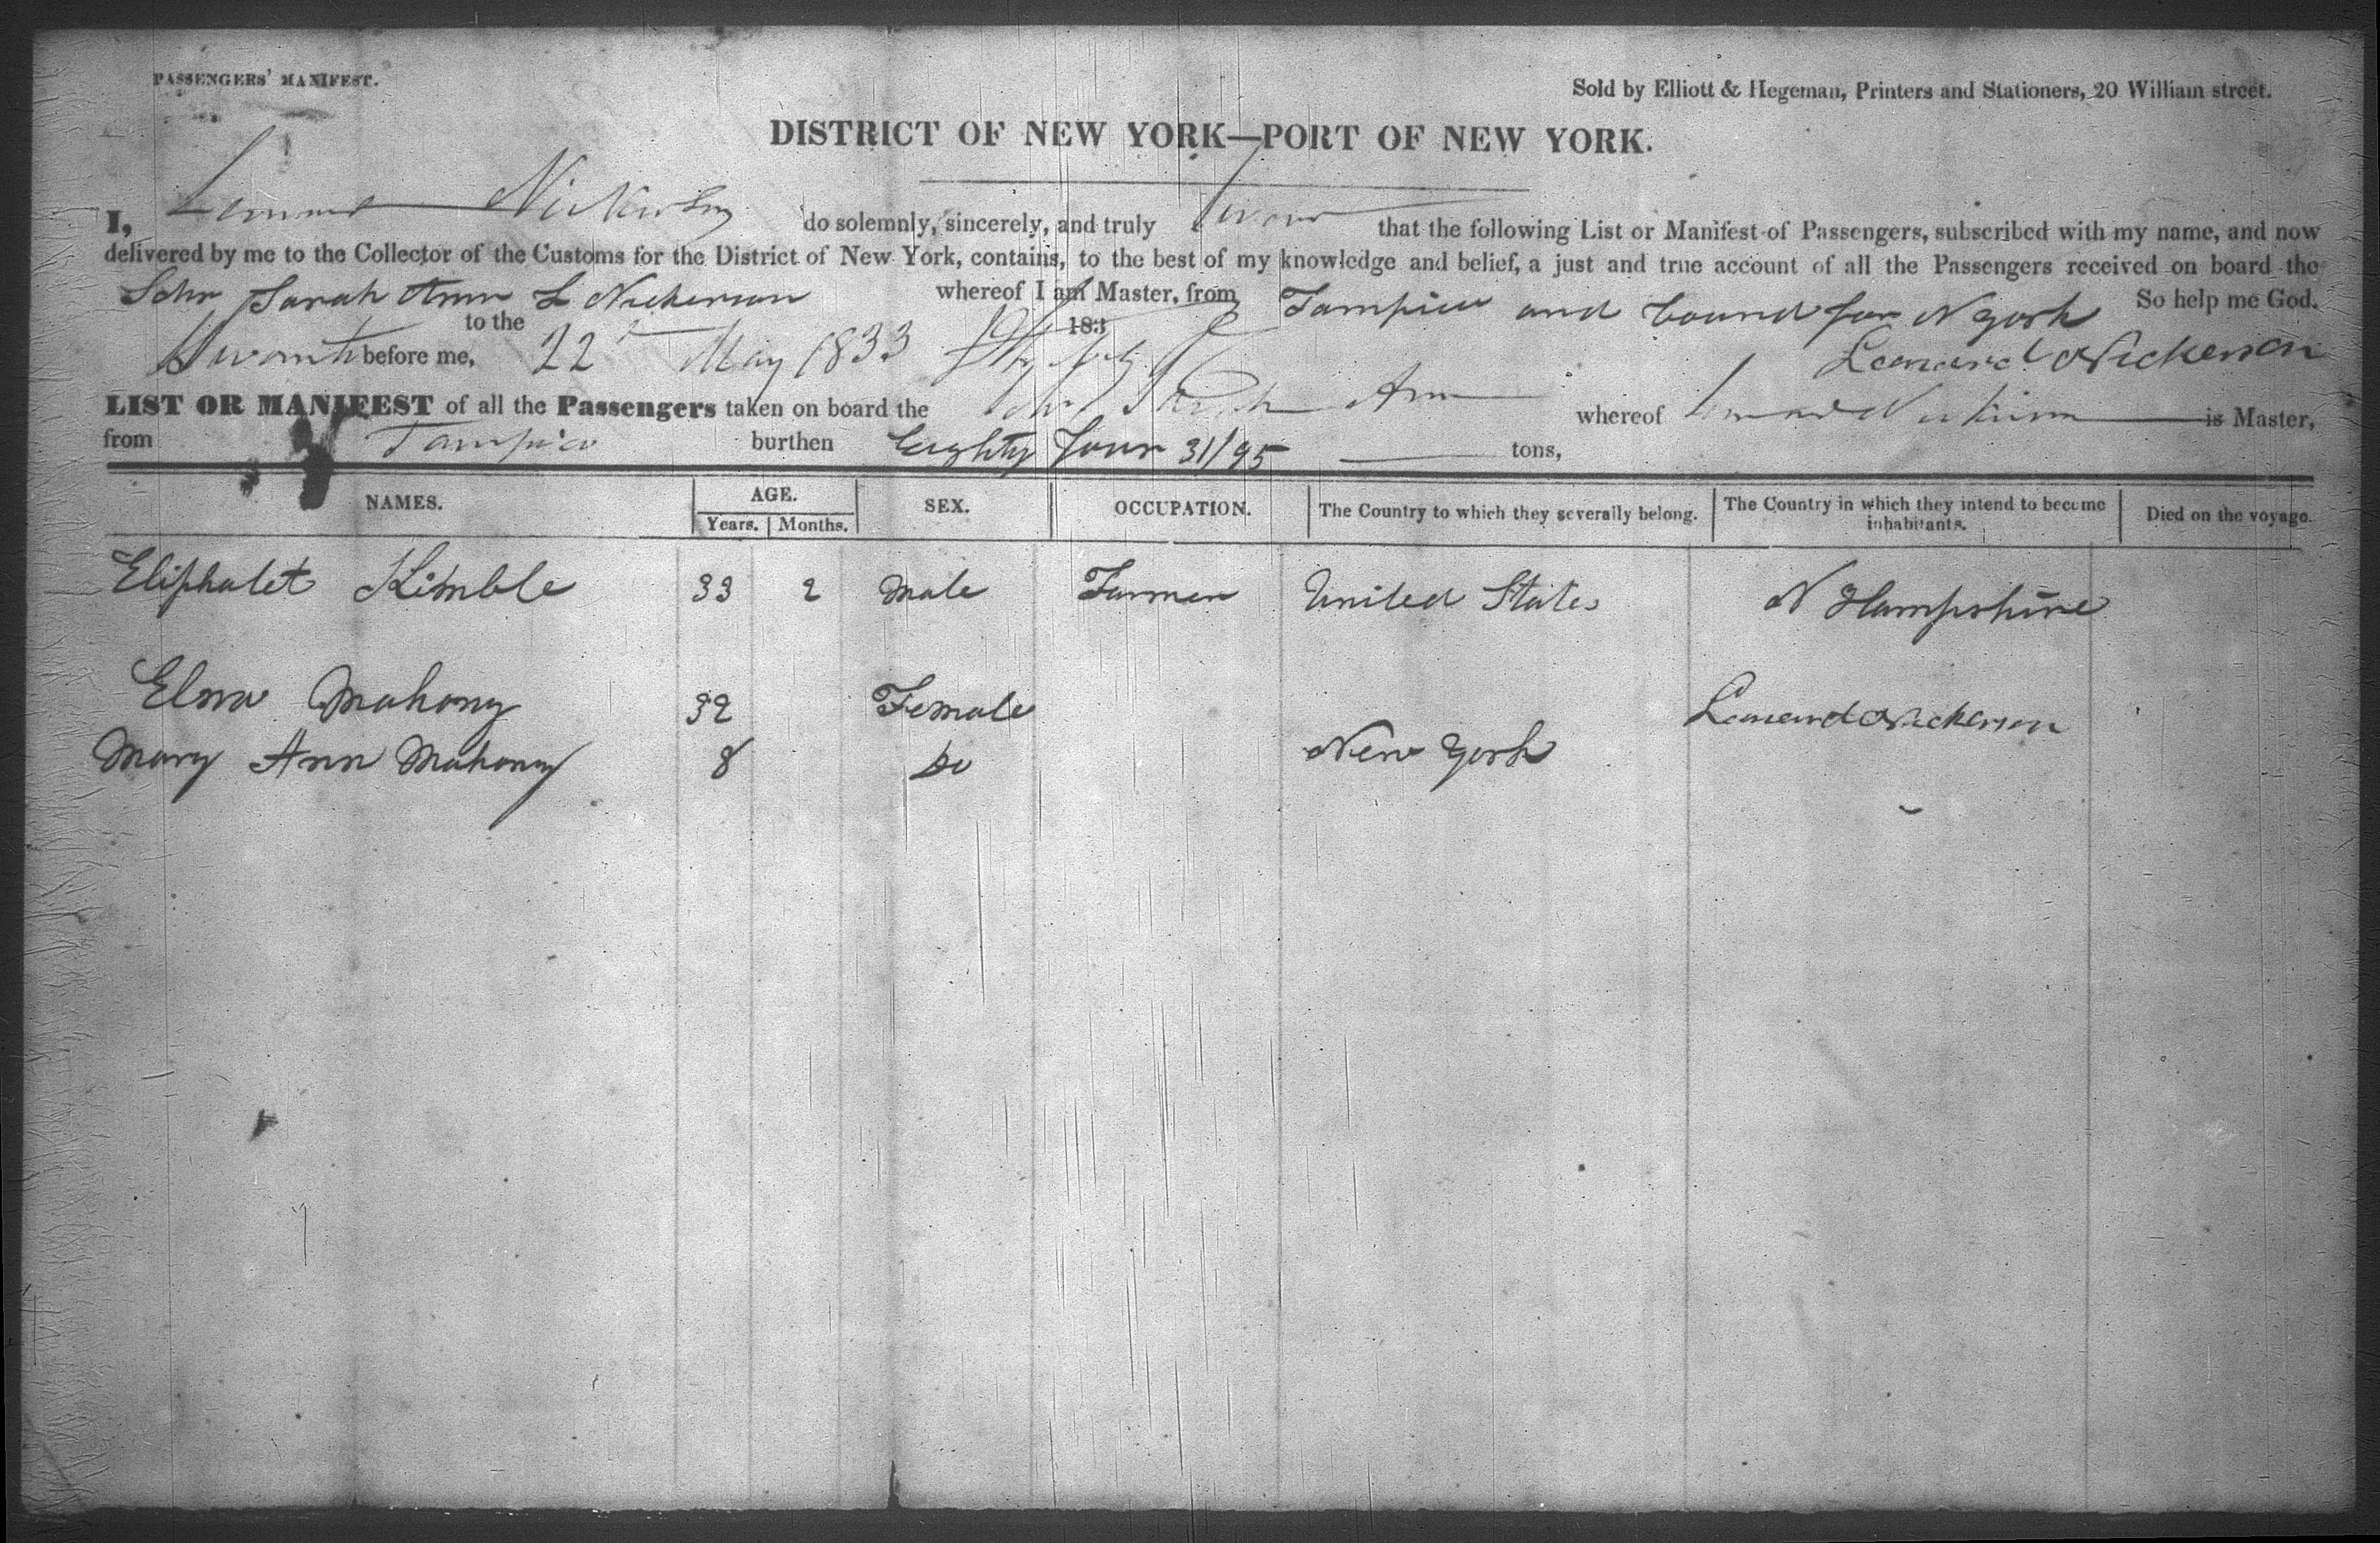 PASSENGERS' MANIFEST.
Sold by Elliott & Hegeman, Printers and Stationers, 20 William street.
DISTRICT OF NEW YORK—PORT OF NEW YORK.
I, Leonard Nickerson do solemnly, sincerely, and truly Swear that the following List or Manifest of Passengers, subscribed with my name, and now
delivered by me to the Collector of the Customs for the District of New York, contains, to the best of my knowledge and belief, a just and true account of all the Passengers received on board the
Schr Sarah Ann L Nickerson whereof I am Master, from Tampico and bound for N York So help me God.
to the 183
Sworn to before me, 22 May 1833 Leonard Nickerson
LIST OR MANIFEST of all the Passengers taken on board the Schr Sarah Ann whereof Leonard Nickerson is Master,
from Tampico burthen Eighty four 31/95 tons,
NAMES. AGE. SEX. OCCUPATION. The Country to which they severally belong. The Country in which they intend to become inhabitants. Died on the voyage.
Years. Months.
Eliphalet Kimble 33 2 Male Farmer United States N Hampshire
Elnra Mahony 32 Female Leonard Nickerson
Mary Ann Mahony 8 Do New York